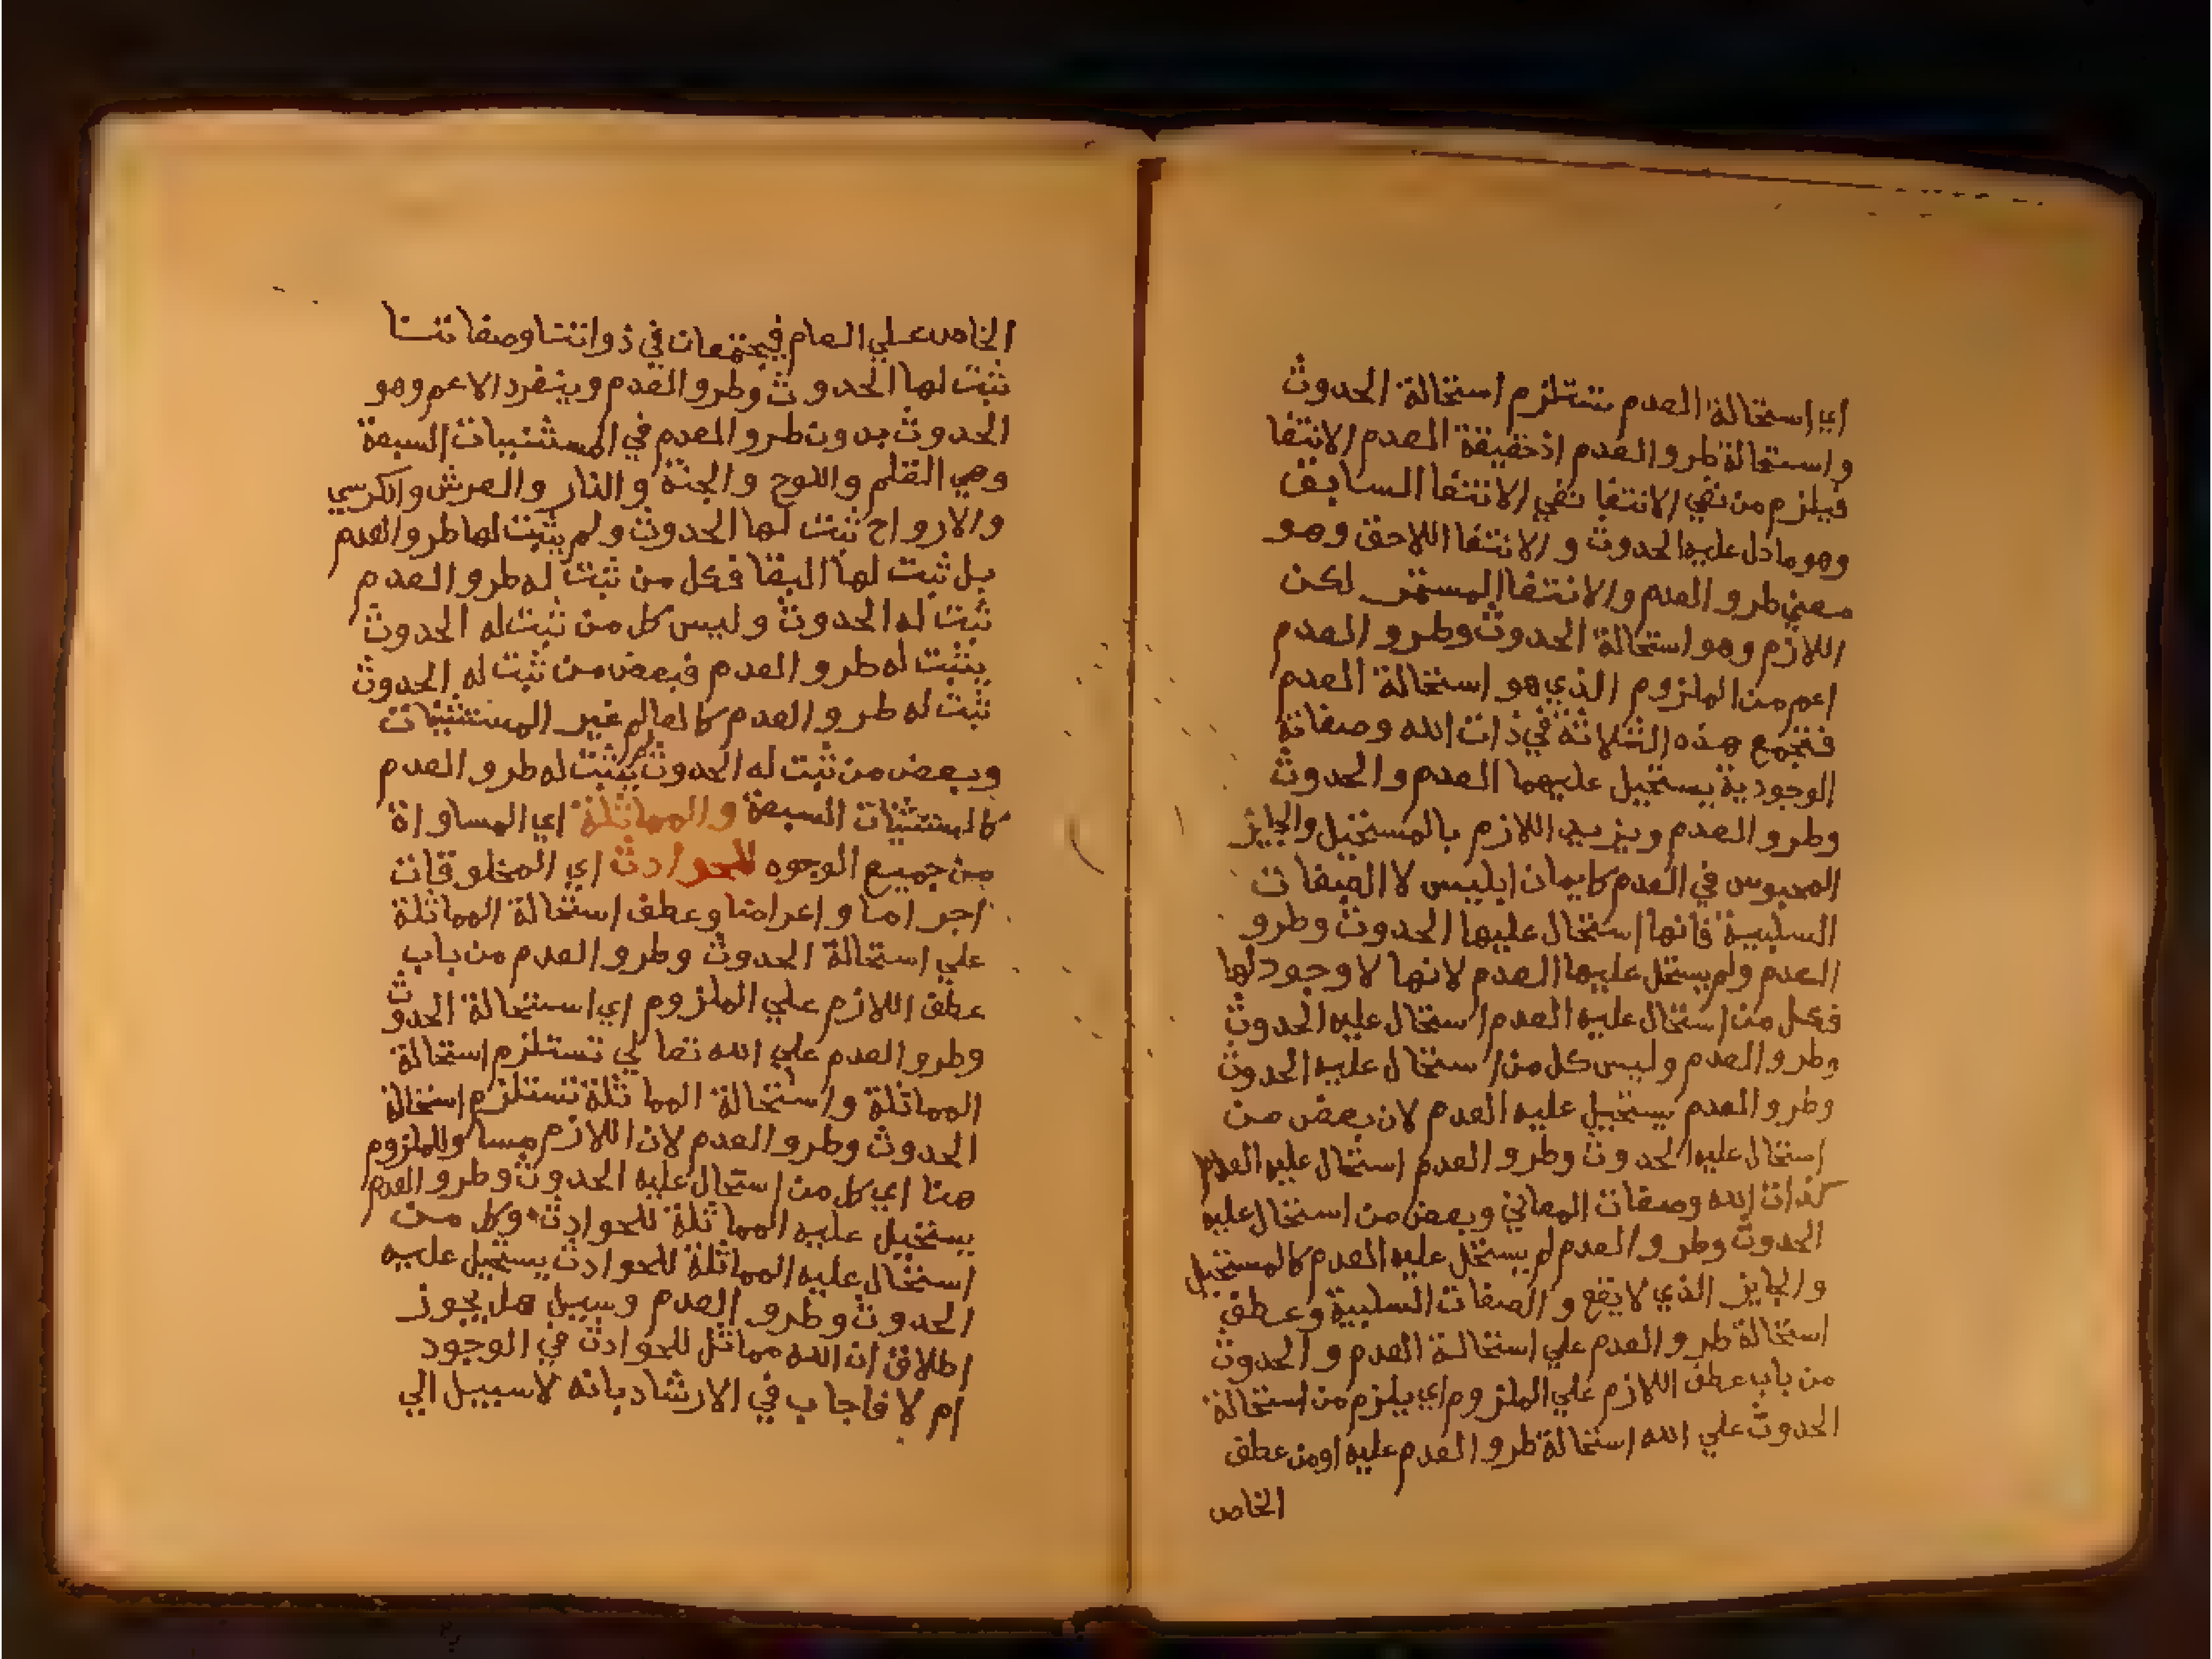 اي استحالة العدم تستلزم استحالة الحدوث
واستحالة طرو العدم اذ حقيقة العدم الانتفا
فيلزم من نفي الانتفا نفي الانتفا السابق
وهو ما دل عليه الحدوث و الانتفا اللاحق وهو
معني طرو العدم والانتفا المستمر لكن
اللازم وهو استحالة الحدوث وطرو العدم
اعم من الملزوم الذي هو استحالة العدم
فتجمع هذه الثلاثة في ذات الله وصفاته
الوجودية يستحيل عليهما العدم والحدوث
وطرو العدم ويزيد اللازم بالمستحيل والجايز
المحبوس في العدم كايمان ابليس لا الصفات
السلبية فانها استحال عليها الحدوث وطرو
العدم ولم يستحل عليها العدم لانها لا وجود لها
فكل من استحال عليه العدم استحال عليه الحدوث
وطرو العدم وليس كل من استحال عليه الحدوث
وطرو العدم يستحيل عليه العدم لان بعض من
استحال عليه الحدوث وطرو العدم استحال عليه العدم
كذات الله وصفات المعاني وبعض من استحال عليه
الحدوث وطرو العدم لم يستحل عليه العدم كالمستحيل
والجايز الذي لا يقع و الصفات السلبية وعطف
استحالة طرو العدم علي استحالة العدم و الحدوث
من باب عطف اللازم علي الملزوم اي يلزم من استحالة
الحدوث علي الله استحالة طرو العدم عليه او من عطف
الخاص
الخاص علي العام فيجتمعان في ذواتنا وصفاتنا
ثبت لها الحدوث وطرو العدم وينفرد الاعم وهو
الحدوث بدون طرو العدم في المستثنيات السبعة
وهي القلم واللوح والجنة والنار والعرش والكرسي
والارواح ثبت لها الحدوث ولم يثبت لها طرو العدم
بل ثبت لها البقا فكل من ثبت له طرو العدم
ثبت له الحدوث وليس كل من ثبت له الحدوث
يثبت له طرو العدم فبعض من ثبت له الحدوث
ثبت له طرو العدم كالعالم غير المستثنيات
وبعض من ثبت له الحدوث لم يثبت له طرو العدم
كالمستثنيات السبعة والمماثلة اي المساواة
من جميع الوجوه للحوادث اي المخلوقات
اجراما و اعراضا وعطف استحالة المماثلة
علي استحالة الحدوث وطرو العدم من باب
عطف اللازم علي الملزوم اي استحالة الحدوث
وطرو العدم علي الله تعالي تستلزم استحالة
المماثلة واستحالة المماثلة تستلزم استحالة
الحدوث وطرو العدم لان اللازم مساو للملزوم
هنا اي كل من استحال عليه الحدوث وطرو العدم
يستحيل عليه المماثلة للحوادث وكل من
استحال عليه المماثلة للحوادث يستحيل عليه
الحدوث وطرو العدم وسيل هل يجوز
اطلاق ان الله مماثل للحوادث في الوجود
ام لا فاجاب في الارشاد بانه لا سبيل الي